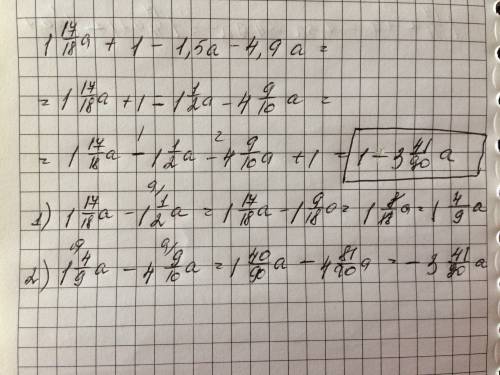 1 17/18 a + 1 - 1,5a - 4,9a =
= 1 17/18 a + 1 - 1 1/2 a - 4 9/10 a =
= 1 17/18 a -¹ 1 1/2 a -² 4 9/10 a + 1 = 1 - 3 41/90 a
1) 1 17/18 a - 1 1/2 ⁹⁾ a = 1 17/18 a - 1 9/18 a = 1 8/18 a = 1 4/9 a
2) 1 4/9 a - 4 9/10 ⁹⁾ a = 1 40/90 a - 4 81/90 a = - 3 41/90 a